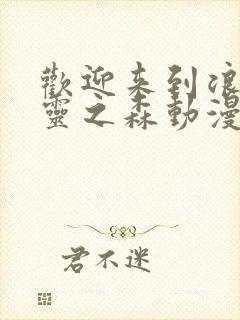 歡迎来到浪
靈之森動漫
君不迷